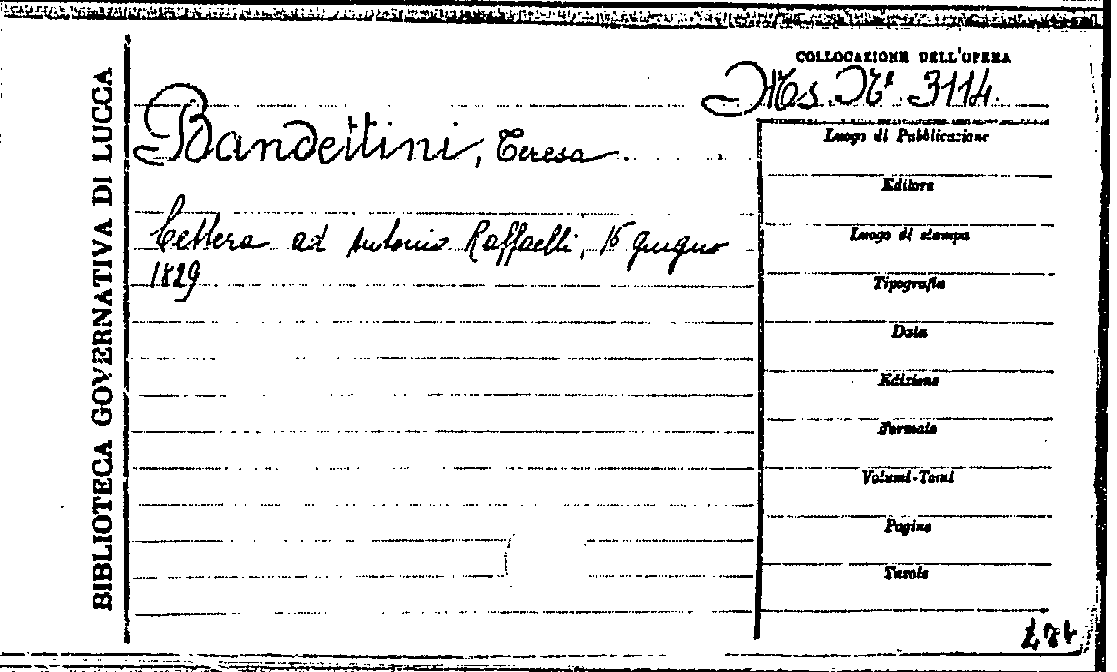 BIBLIOTECA GOVERNATIVA DI LUCCA
COLLOCAZIONE DELL'OPERA
Ms. N° 3114.
Bandettini, Teresa
Lettera ad Antonio Raffaelli, 15 giugno
1829
Luogo di Pubblicazione
Editore
Luogo di stampa
Tipografia
Data
Edizione
Formato
Volumi-Tomi
Pagine
Tavole